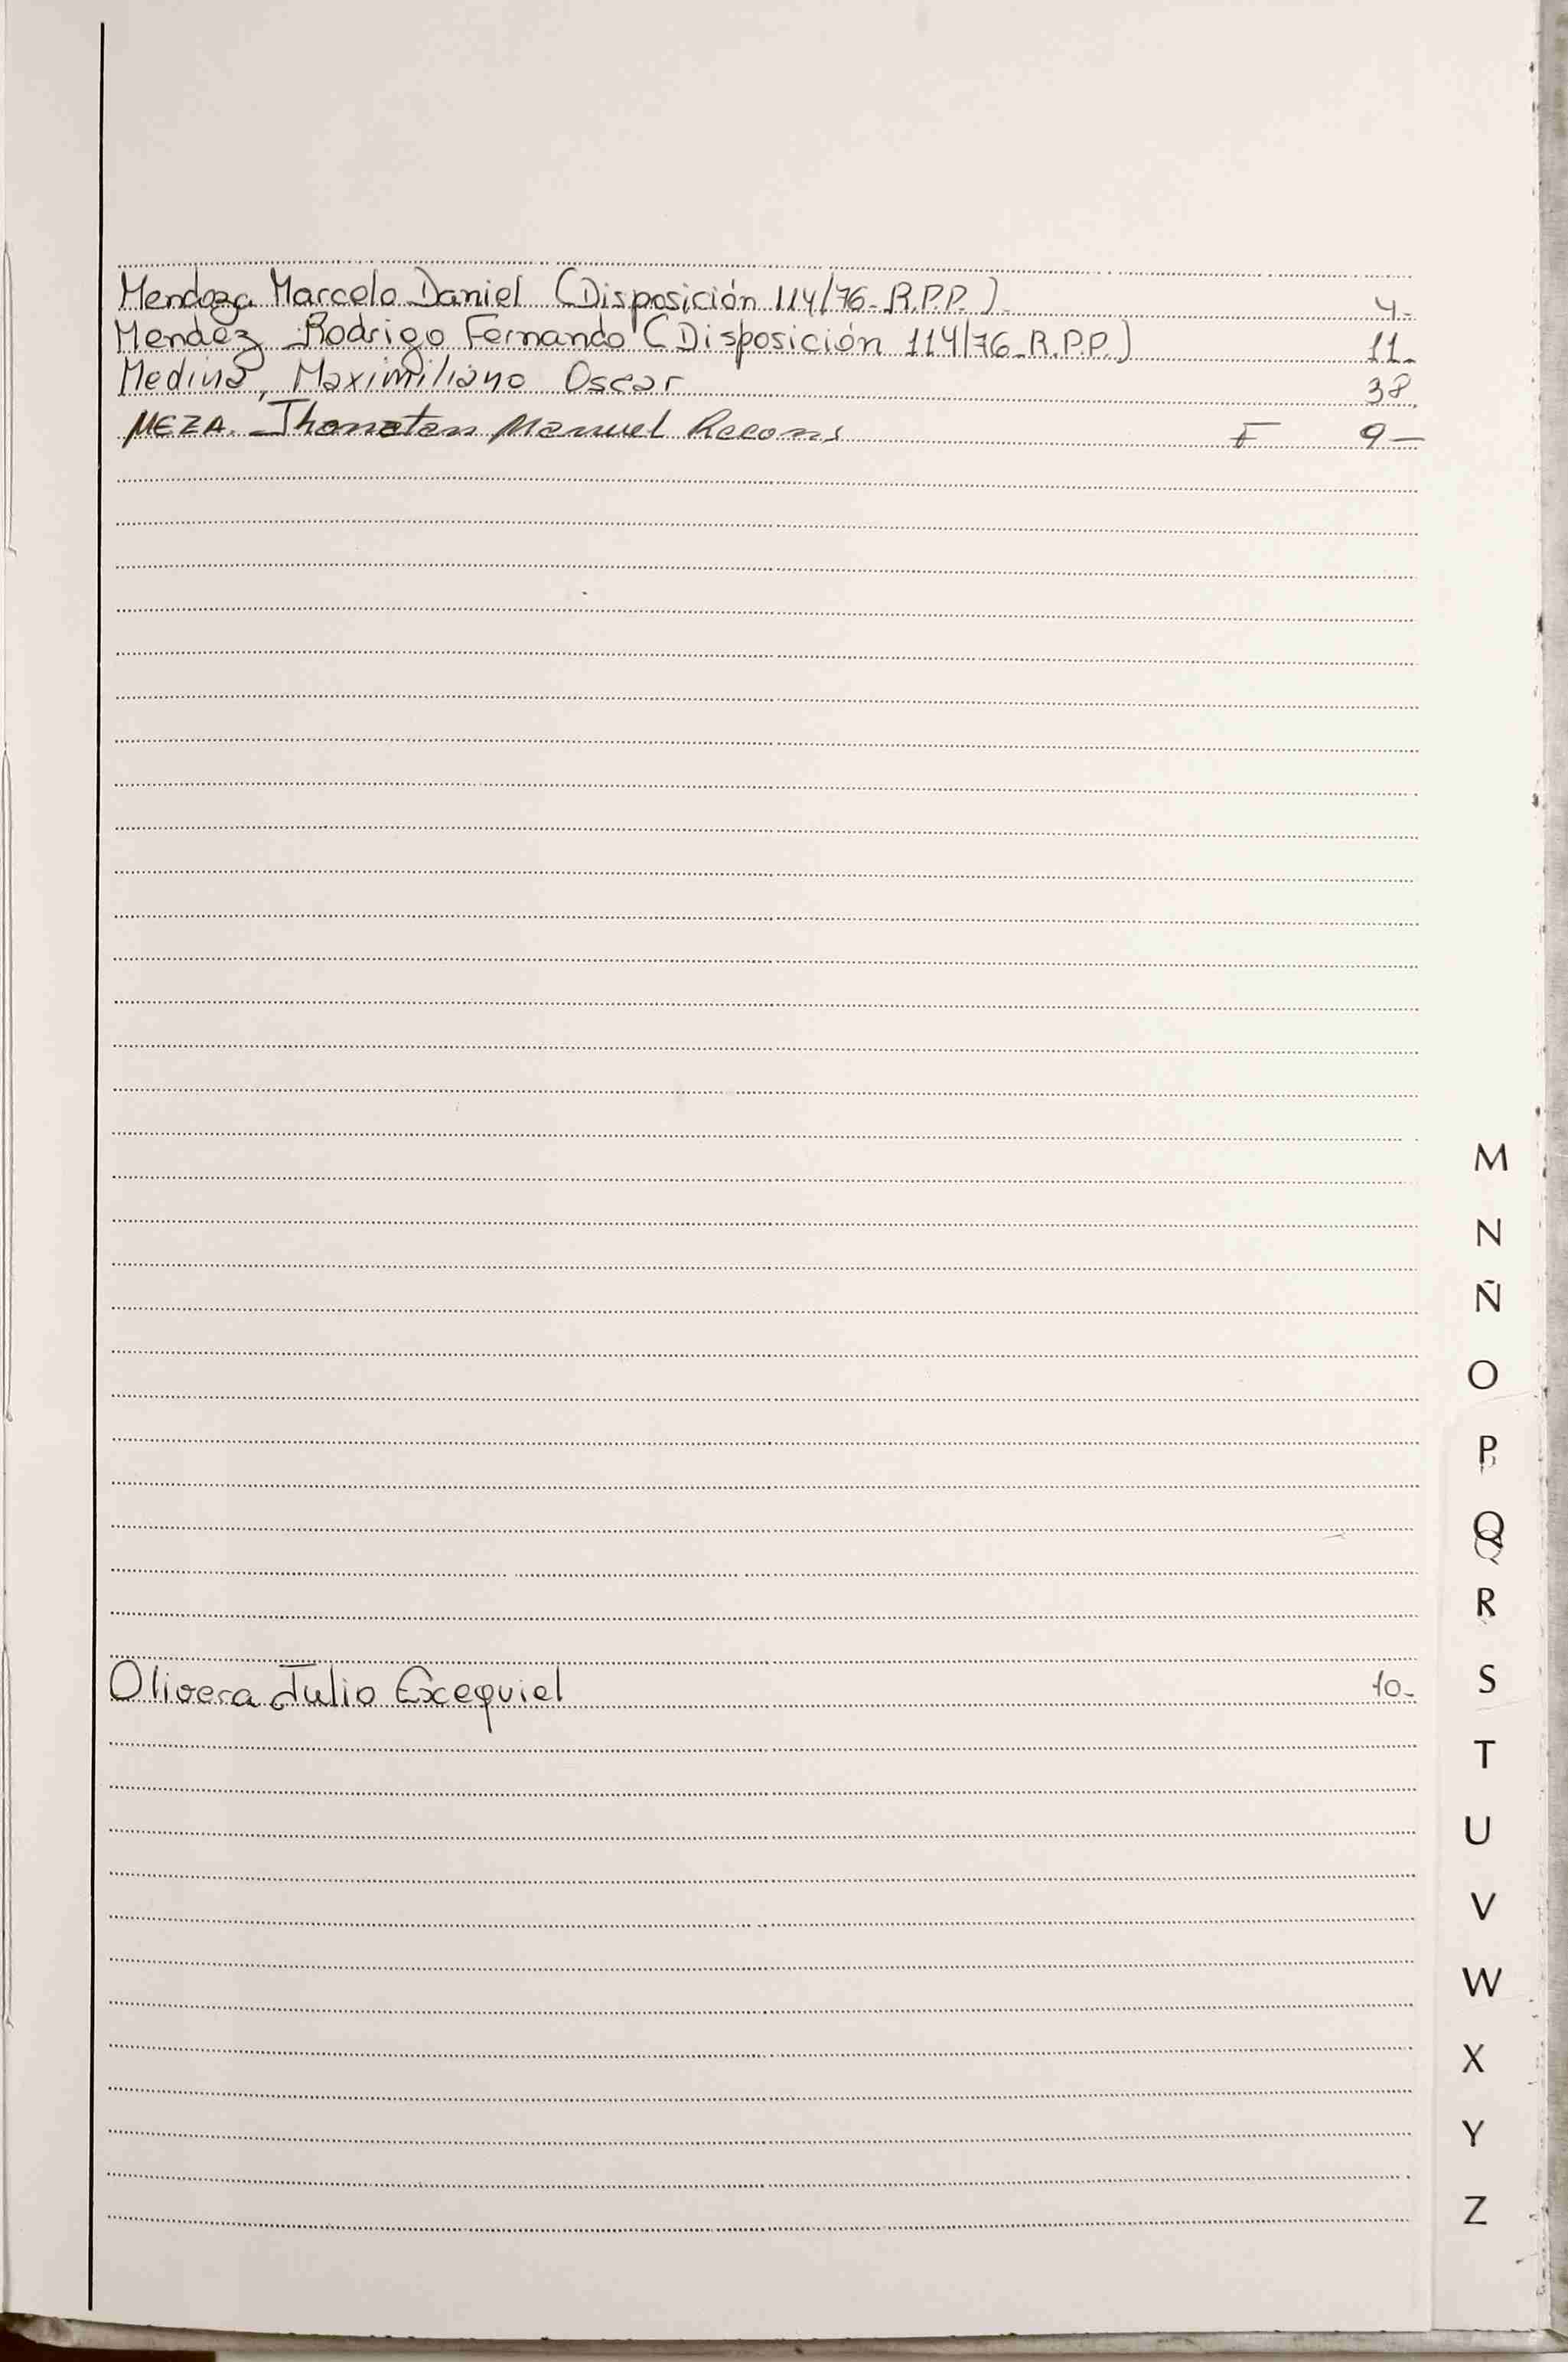 Mendoza Marcelo Daniel (Disposición 114/76-R.P.P.) 4-
Mendez Rodrigo Fernando (Disposición 114/76-R.P.P.) 11-
Medina, Maximiliano Oscar 38
MEZA. Jhonatan Manuel F 9-
M
N
Ñ
O
P
Q
R
Olivera Julio Exequiel 10-
S
T
U
V
W
X
Y
Z